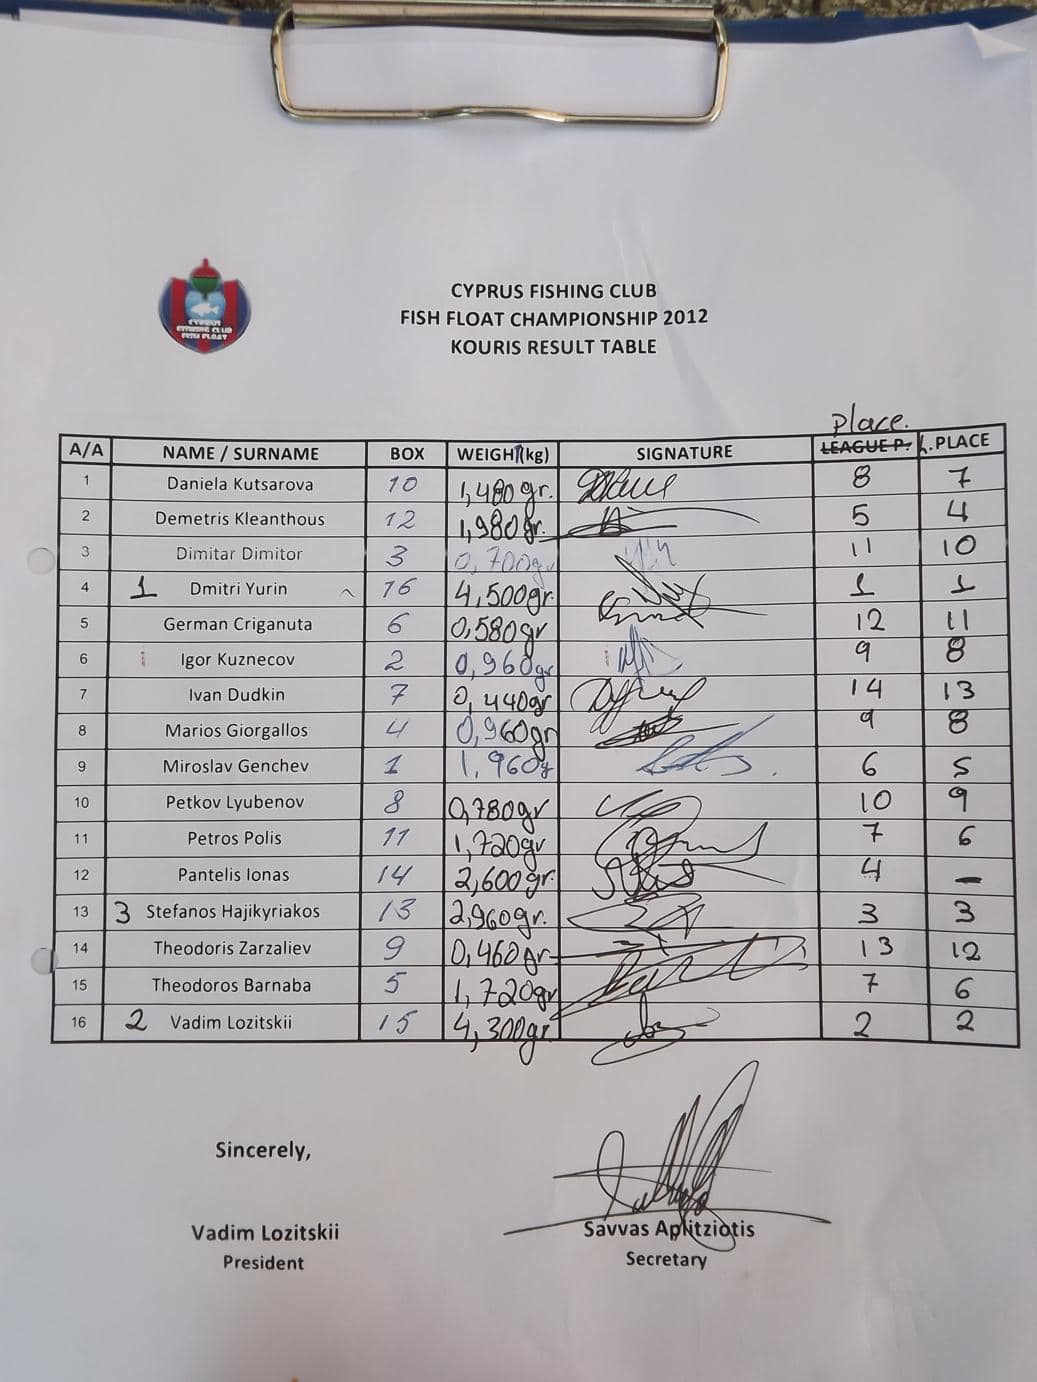 CYPRUS
FISHING CLUB
FISH FLOAT
CYPRUS FISHING CLUB
FISH FLOAT CHAMPIONSHIP 2012
KOURIS RESULT TABLE
Place.
A/A NAME / SURNAME BOX WEIGHT(kg) SIGNATURE LEAGUE P. L.PLACE
1 Daniela Kutsarova 10 1,480gr. 8 7
2 Demetris Kleanthous 12 1,980gr. 5 4
3 Dimitar Dimitor 3 0,700gr 11 10
4 1 Dmitri Yurin 16 4,500gr. 1 1
5 German Criganuta 6 0,580gr 12 11
6 Igor Kuznecov 2 0,960gr 9 8
7 Ivan Dudkin 7 0,440gr 14 13
8 Marios Giorgallos 4 0,960gr 9 8
9 Miroslav Genchev 1 1,960g 6 5
10 Petkov Lyubenov 8 0,780gr 10 9
11 Petros Polis 11 1,720gr 7 6
12 Pantelis Ionas 14 2,600gr. 4 –
13 3 Stefanos Hajikyriakos 13 2,960gr. 3 3
14 Theodoris Zarzaliev 9 0,460gr 13 12
15 Theodoros Barnaba 5 1,720gr 7 6
16 2 Vadim Lozitskii 15 4,300gr. 2 2
Sincerely,
Vadim Lozitskii Savvas Aplitziotis
President Secretary